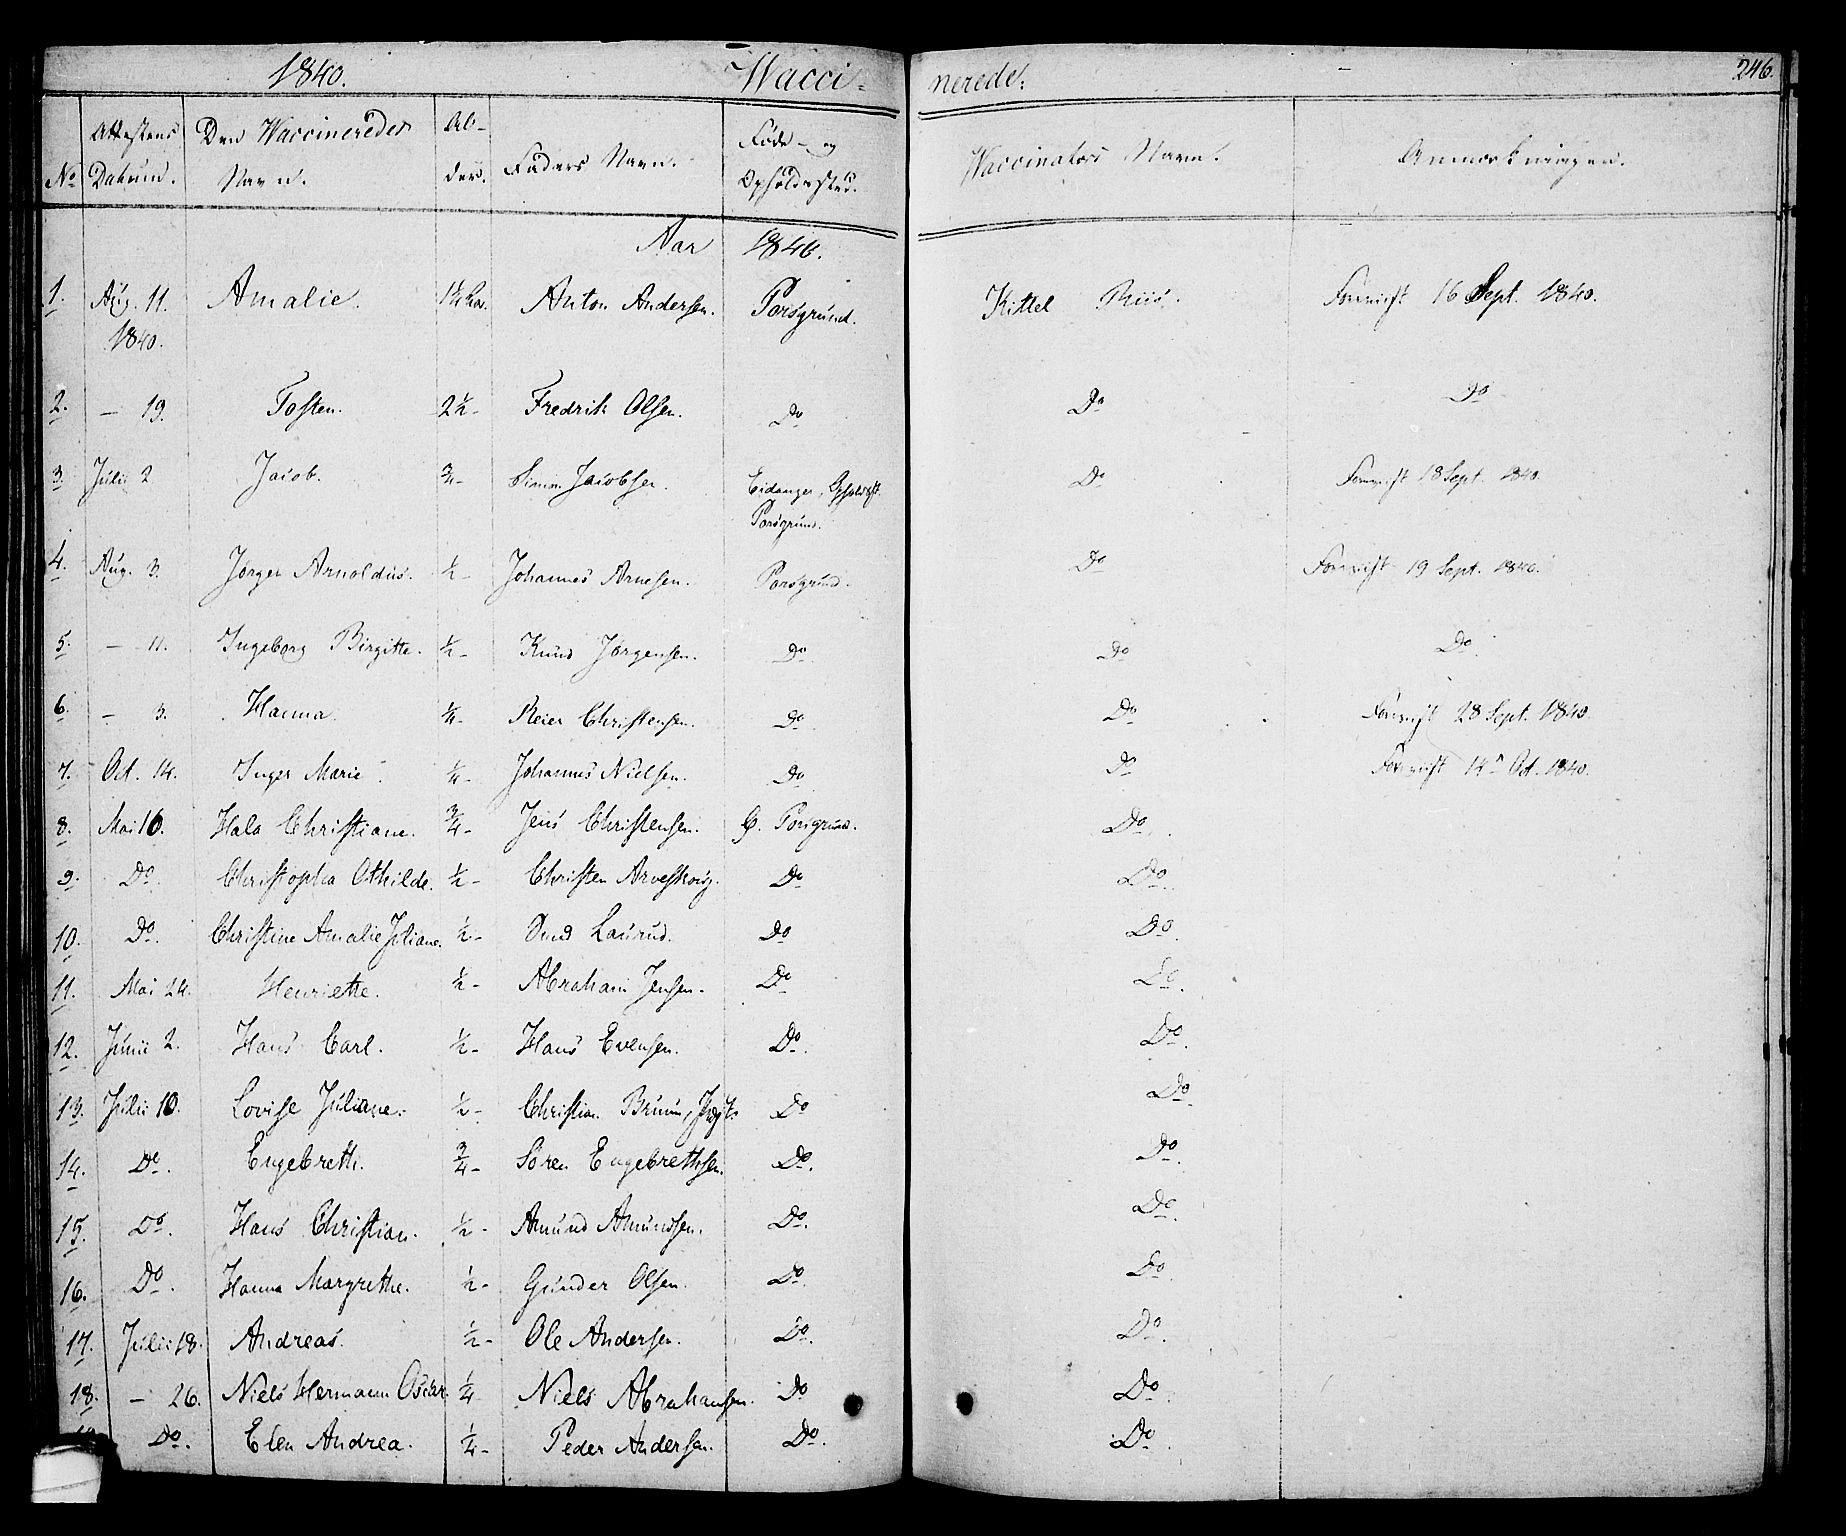 1840. Wacci-nerede. 246.
No Attestens Datum. Den Waccineredes Navn. Al-der. Faders Navn. Føde- og Opholdssted. Vaccinators Navn. Anmærkninger.
Aar 1840.
1. Aug. 11. 1840. Amalie. Anton Andersen. Porsgrund. Kittel Riis. 16 Sept. 1840.
2. — 19. Tosten. 2½ - Fredrik Olsen. Do Do Do
3. Julii 2 Jacob. ¾ - Simon Jacobsen. Eidanger, Porsgrund. Do 18 Sept. 1840.
4. Aug. 3. Jørgen Arnoldus. ½ - Johannes Arnesen. Porsgrund. Do 19 Sept. 1840.
5. — 11. Ingeborg Birgitte. ½ - Knud Jørgensen. Do Do Do.
6. — 3. Hanna. ¼ - Reier Christensen. Do Do 28 Sept. 1840.
7. Oct. 14. Inger Marie. ¼ - Johannes Nielsen. Do Do 14 Oct. 1840.
8. Mai 16. Christiane. ¾ - Jens Christensen. Porsgrund. Do.
9. Do. Christopha Othilde. ½ - Christen Do Do.
10. Do. Christine Amalie Juliane. ½ - Do Do.
11. Mai 24. Henriette. ½ - Abraham Jensen. Do Do.
12. Junii 2. Hans Carl. ½ - Hans Evensen. Do. Do.
13. Julii 10. Lovise Juliane. ½ - Christian Bruun, Do Do.
14. Do. Engebreth. ¾ - Søren Engebrethsen. Do. Do.
15. Do. Hans Christian. ½ - Amund Amundsen. Do. Do.
16. Do. Hanna Margrethe. ½ - Gunder Olsen. Do. Do.
17. Julii 18. Andreas. ½ - Ole Andersen. Do. Do.
18. — 26. Niels Hermann Oscar. ¼ - Niels Abrahamsen. Do Do.
Do. Elen Andrea. ¼ - Peder Andersen. Do. Do.